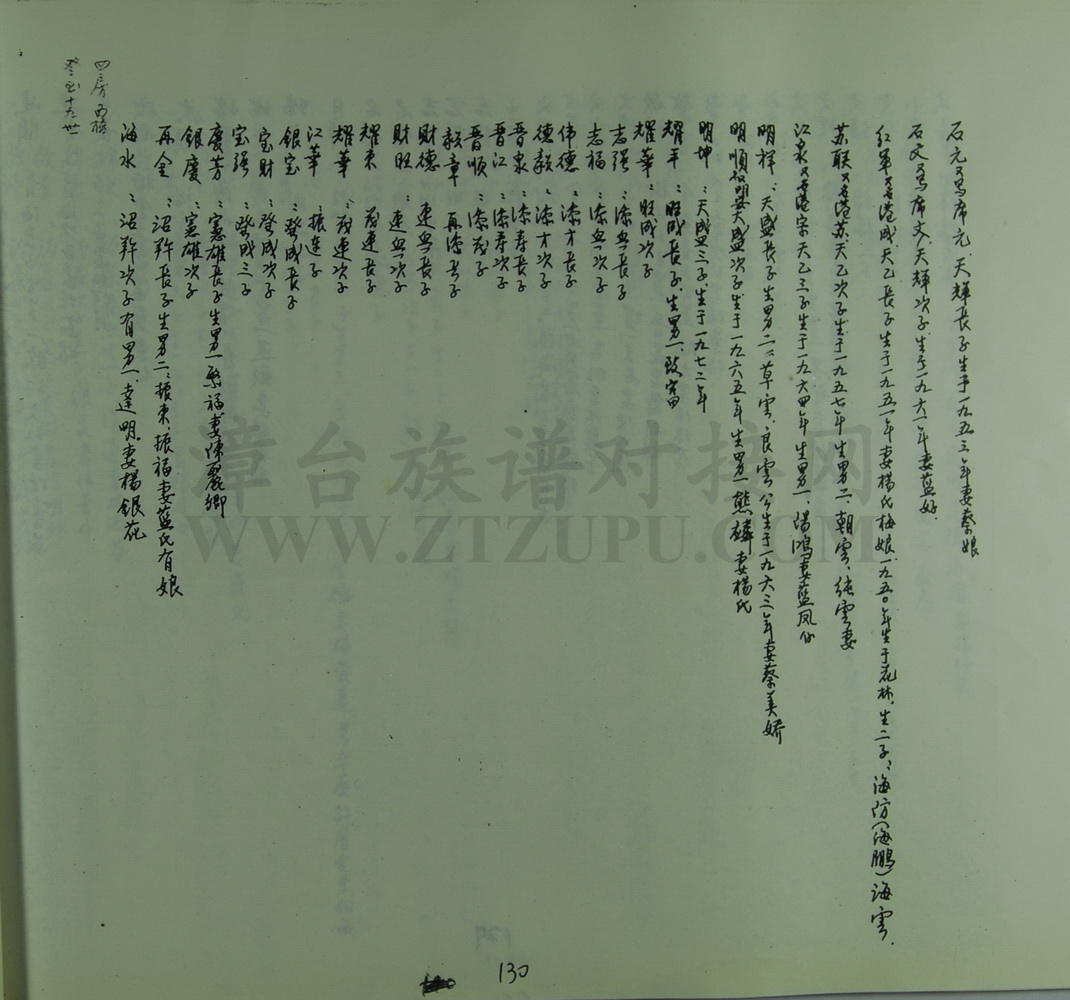 石元又名席元,天輝長子生于一九五三年妻蔡娘
石文又名席文,天輝次子生于一九六一年妻藍好.
红军又名港成,天乙長子生于一九五一年妻楊氏梅娘,一九五〇年生于花林,生二子:海防(海鵬)海雲.
苏联又名港苏天乙次子生于一九五七年生男二.朝雲、純雲妻
江泉又名港宗天乙三子生于一九六四年生男一.湯鴻妻藍凤
明祥:天盛長子生男二:草雲.良雲公生于一九六三年妻蔡美嬌
明順天盛次子生于一九六五年生男一熊麟妻楊氏
明坤:天盛三子,生于一九七二年
耀平:旺成長子,生男一,致富
耀華:旺成次子
志强:添無長子
志福:添無次子
伟德:添才長子
德毅:添才次子
晋泉:添寿長子
晋江:添寿次子
晋順:添茂子
毅章 再添長子
財德 連無長子
財旺:連無次子
耀東 茂連長子
耀華:茂連次子
江華 振連子
銀宝:癸成長子
宝財:癸成次子
宝强:癸成三子
慶芳:憲雄長子生男一.榮福妻陳麗卿
銀慶:憲雄次子
再全:沼許長子生男二:振東.振福妻藍氏有娘
海水:沼許次子有男一,達明.妻楊銀花
四房
十九世
章台族谱对接网
WWW.ZTZUPU.COM
130